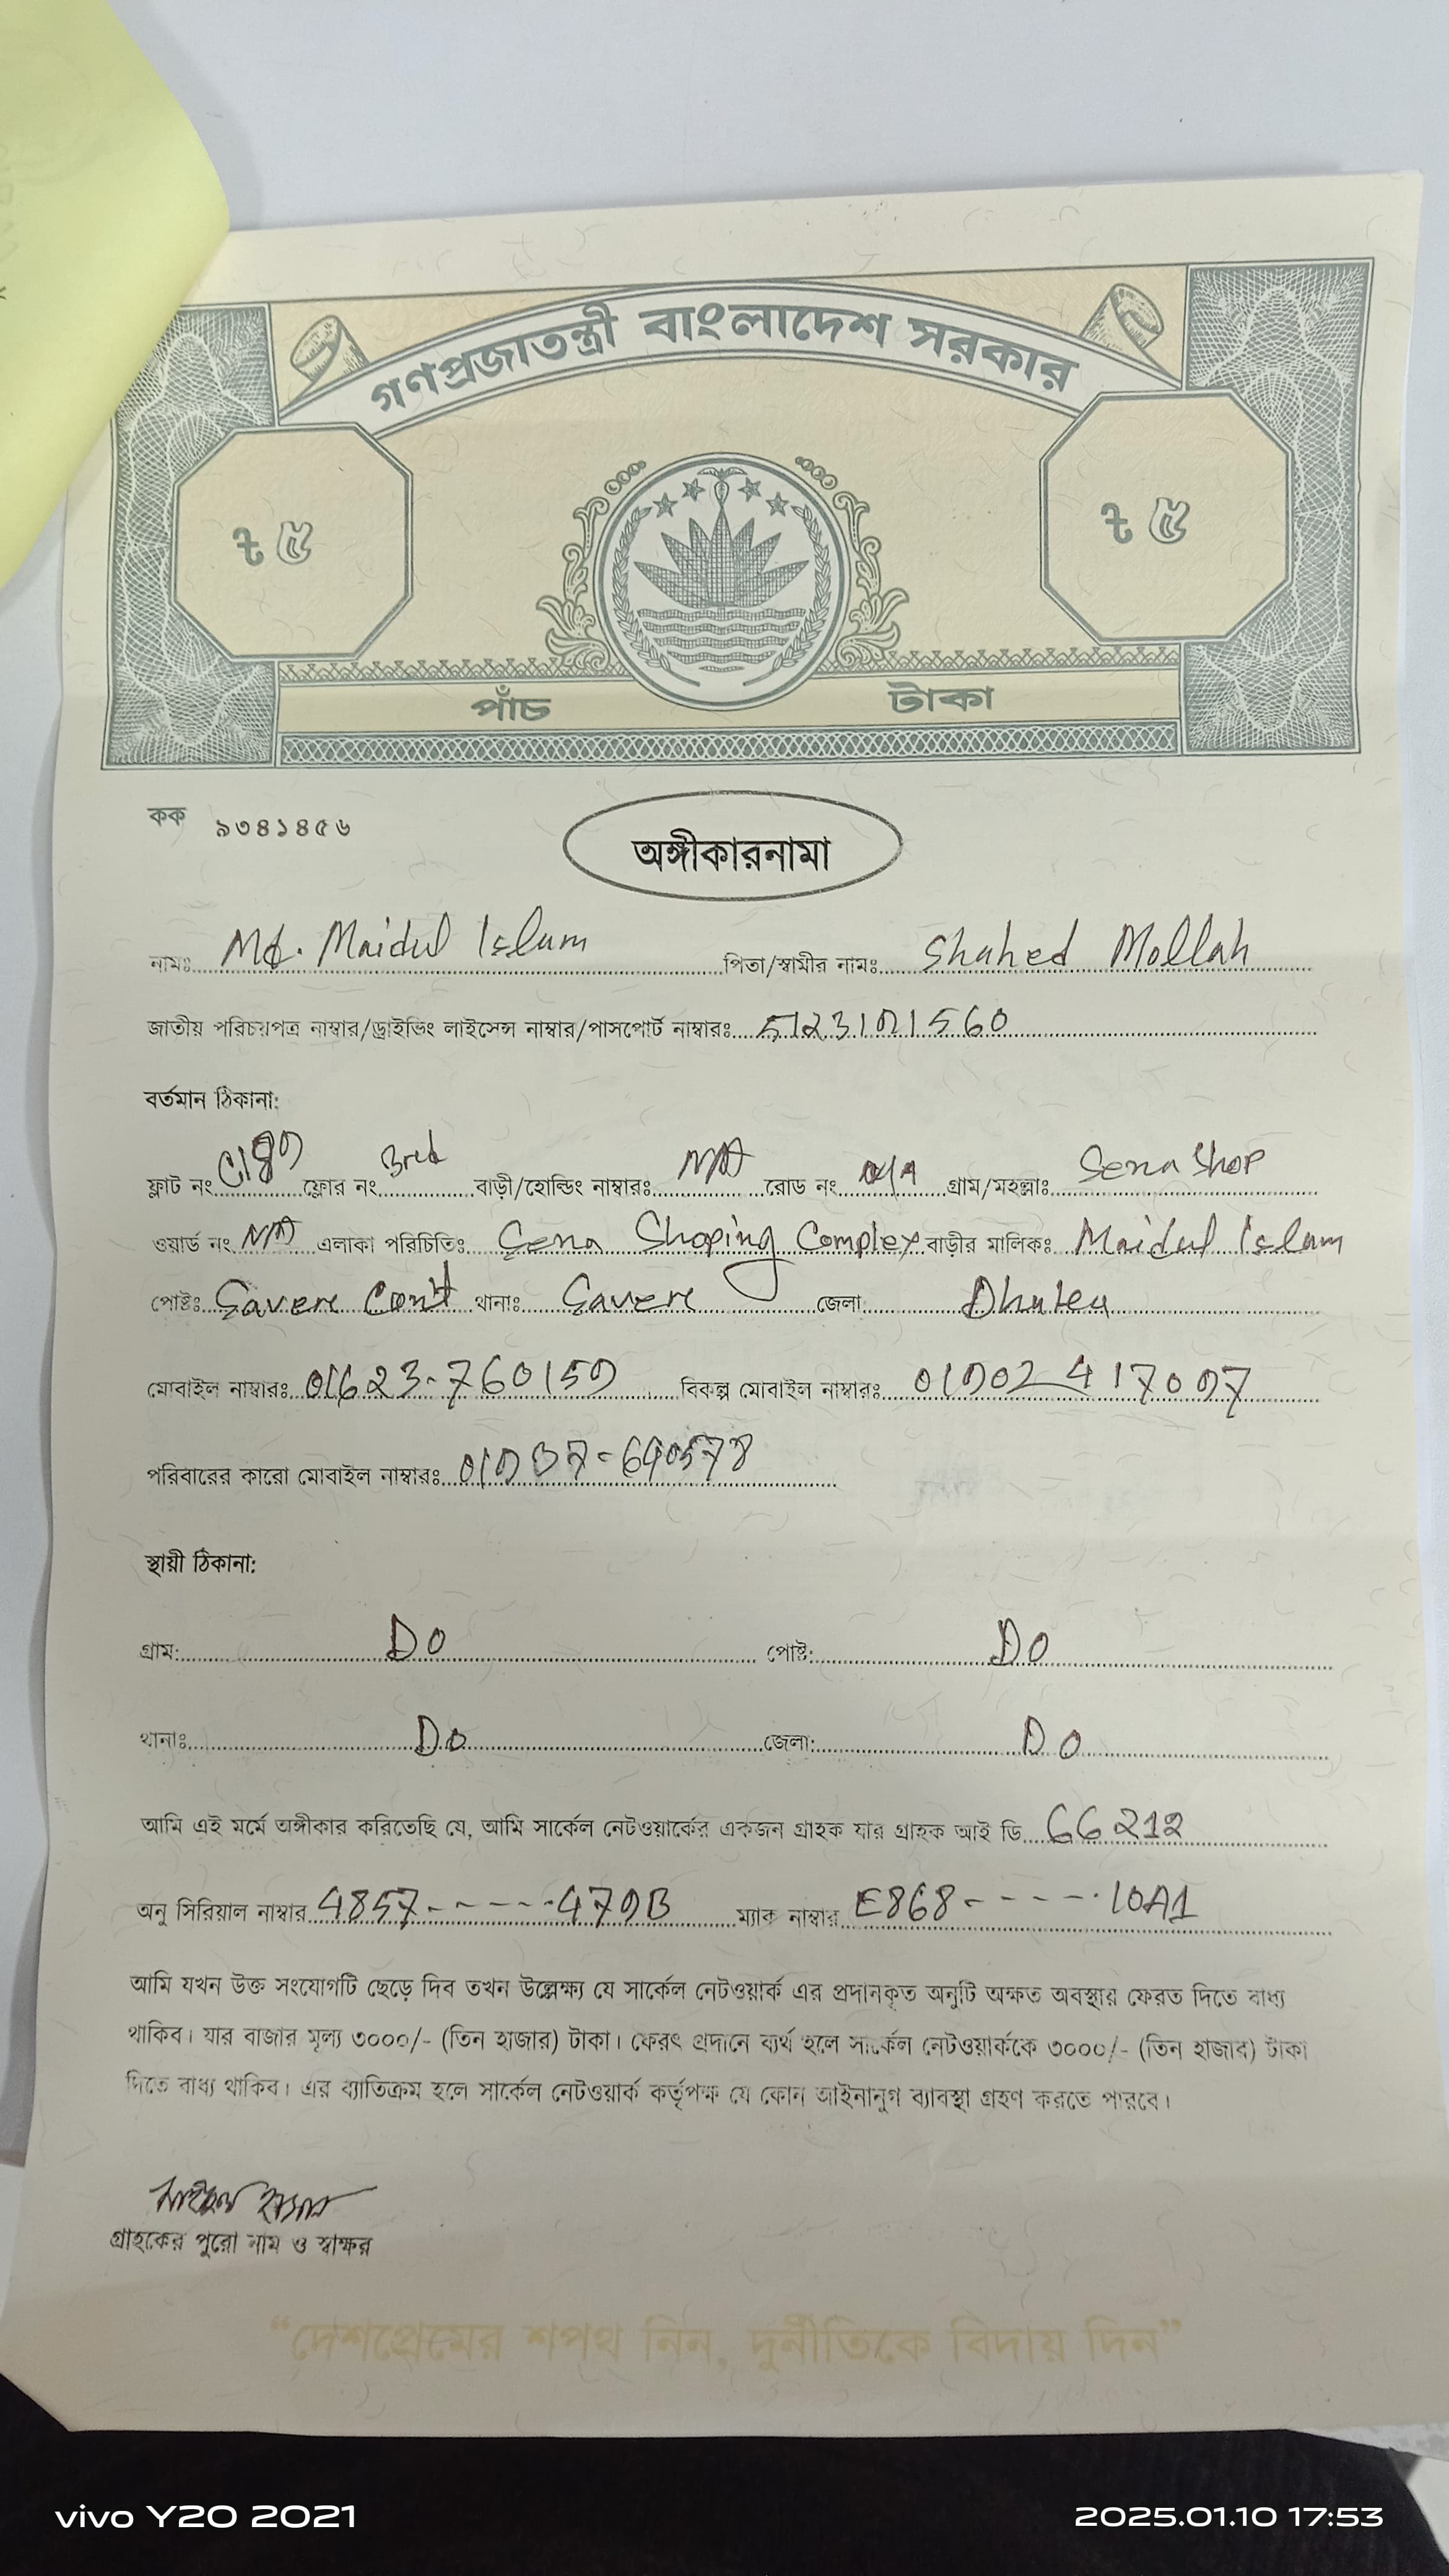 গণপ্রজাতন্ত্রী বাংলাদেশ সরকার
৳ ৫ ৳ ৫
পাঁচ টাকা
কক ৯৩৪১৪৫৬
অঙ্গীকারনামা
নামঃ Md. Maidul Islam পিতা/স্বামীর নামঃ Shahed Mollah
জাতীয় পরিচয়পত্র নাম্বার/ড্রাইভিং লাইসেন্স নাম্বার/পাসপোর্ট নাম্বারঃ 5123101560
বর্তমান ঠিকানা:
ফ্লাট নং ফ্লোর নং 3rd বাড়ী/হোল্ডিং নাম্বারঃ N/A রোড নং N/A গ্রাম/মহল্লাঃ Sena Shop
ওয়ার্ড নং N/A এলাকা পরিচিতিঃ Sena Shoping Complex বাড়ীর মালিকঃ Maidul Islam
পোষ্টঃ Savere Cant থানাঃ Savere জেলা
মোবাইল নাম্বারঃ 01623-760159 বিকল্প মোবাইল নাম্বারঃ 01902417097
পরিবারের কারো মোবাইল নাম্বারঃ
স্থায়ী ঠিকানা:
গ্রাম: Do পোষ্ট: Do
থানাঃ Do জেলা: Do
আমি এই মর্মে অঙ্গীকার করিতেছি যে, আমি সার্কেল নেটওয়ার্কের একজন গ্রাহক যার গ্রাহক আই ডি 66212
অনু সিরিয়াল নাম্বার 4857-----479B ম্যাক নাম্বার E868-----10A1
আমি যখন উক্ত সংযোগটি ছেড়ে দিব তখন উল্লেক্ষ্য যে সার্কেল নেটওয়ার্ক এর প্রদানকৃত অনুটি অক্ষত অবস্থার ফেরত দিতে বাধ্য
থাকিব। যার বাজার মূল্য ৩০০০/- (তিন হাজার) টাকা। ফেরৎ প্রদানে ব্যর্থ হলে সার্কেল নেটওয়ার্ককে ৩০০০/- (তিন হাজার) টাকা
দিতে বাধ্য থাকিব। এর ব্যাতিক্রম হলে সার্কেল নেটওয়ার্ক কর্তৃপক্ষ যে কোন আইনানুগ ব্যাবস্থা গ্রহণ করতে পারবে।
গ্রাহকের পুরো নাম ও স্বাক্ষর
“দেশপ্রেমের শপথ নিন, দুর্নীতিকে বিদায় দিন”
vivo Y20 2021 2025.01.10 17:53